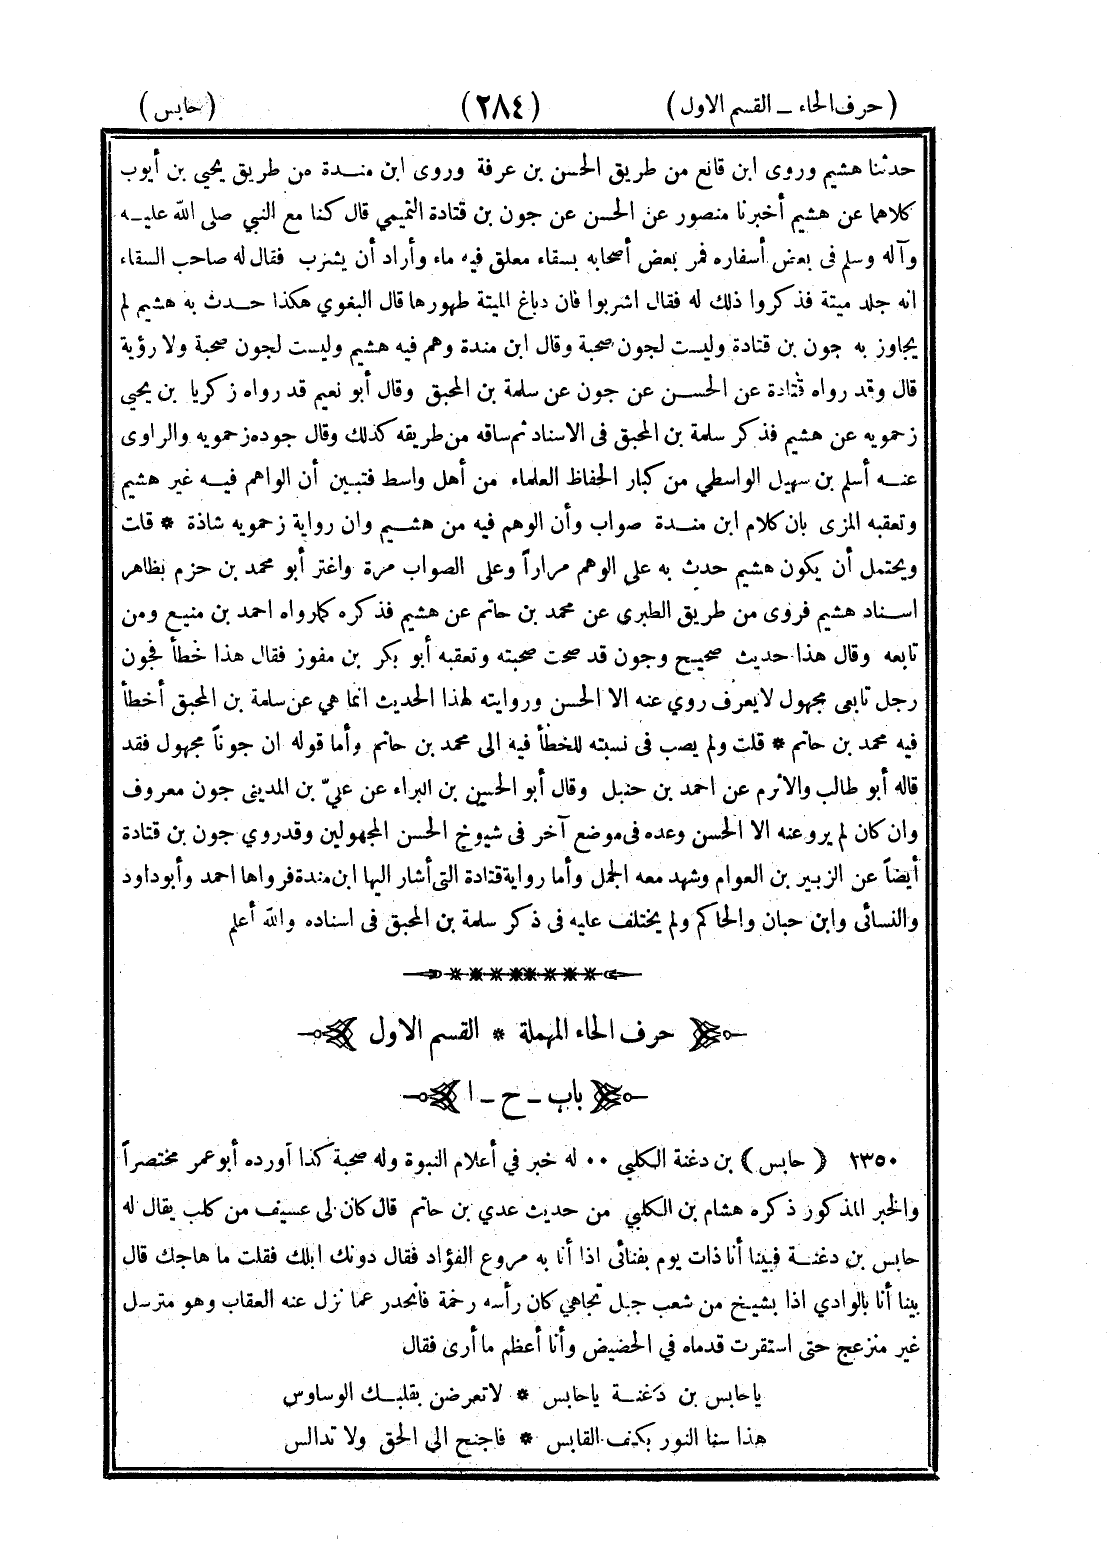 ( حرف الحاء ـ القسم الاول ) (٢٨٤) ( حابس )
حدثنا هشيم وروى ابن قانع من طريق الحسن بن عرفة وروى ابن منـدة من طريق يحيى بن أيوب
كلاهما عن هشيم أخبرنا منصور عن الحسن عن جون بن قتادة التميمي قال كنا مع النبي صلى الله عليـه
وآله وسلم فى بعض أسفاره فمر بعض أصحابه بسقاء معلق فيه ماء وأراد أن يشرب فقال له صاحب السقاء
انه جلد ميتة فذكروا ذلك له فقال اشربوا فان دباغ الميتة طهورها قال البغوي هكذا حـدث به هشيم لم
يجاوز به جون بن قتادة وليست لجون صحبة وقال ابن مندة وهم فيه هشيم وليست لجون صحبة ولا رؤية
قال وقد رواه قتادة عن الحسـن عن جون عن سلمة بن المحبق وقال أبو نعيم قد رواه زكريا بن يحيى
زحمويه عن هشيم فذكر سلمة بن المحبق فى الاسناد ثم ساقه من طريقه كذلك وقال جوده زحمويه والراوى
عنـه أسلم بن سهيل الواسطي من كبار الحفاظ العلماء من أهل واسط فتبين أن الواهم فيـه غير هشيم
وتعقبه المزى بان كلام ابن منـدة صواب وأن الوهم فيه من هشـيم وان رواية زحمويه شاذة * قلت
ويحتمل أن يكون هشيم حدث به على الوهم مراراً وعلى الصواب مرة واغتر أبو محمد بن حزم بظاهر
اسـناد هشيم فروى من طريق الطبري عن محمد بن حاتم عن هشيم فذكره كمارواه احمد بن منيع ومن
تابعه وقال هذا حديث صحيح وجون قد صحت صحبته وتعقبه أبو بكر بن مفوز فقال هذا خطأ فجون
رجل تابعى مجهول لايعرف روي عنه الا الحسن وروايته لهذا الحديث انما هي عن سلمة بن المحبق أخطأ
فيه محمد بن حاتم * قلت ولم يصب فى نسبته للخطأ فيه الى محمد بن حاتم وأما قوله ان جوناً مجهول فقد
قاله أبو طالب والاثرم عن احمد بن حنبل وقال أبو الحسين بن البراء عن عليّ بن المدينى جون معروف
وان كان لم يروعنه الا الحسن وعده فى موضع آخر فى شيوخ الحسن المجهولين وقدروي جون بن قتادة
أيضاً عن الزبير بن العوام وشهد معه الجمل وأما رواية قتادة التى أشار اليها ابن مندة فرواها احمد وأبوداود
والنسائى وابن حبان والحاكم ولم يختلف عليه فى ذكر سلمة بن المحبق فى اسناده والله أعلم
حرف الحاء المهملة * القسم الاول
باب ـ ح ـ ا
٢٣٥٠ ( حابس ) بن دغنة الكلبي ٠٠ له خبر في أعلام النبوة وله صحبة كذا أورده أبوعمر مختصراً
والخبر المذكور ذكره هشام بن الكلبي من حديث عدي بن حاتم قال كان لى عسيف من كلب يقال له
حابس بن دغنـة فبينا أنا ذات يوم بفنائى اذا أنا به مروع الفؤاد فقال دونك ابلك فقلت ما هاجك قال
بينا أنا بالوادي اذا بشيخ من شعب جبل تجاهي كان رأسه رخمة فانحدر عما نزل عنه العقاب وهو مترسل
غير منزعج حتى استقرت قدماه في الحضيض وأنا أعظم ما أرى فقال
ياحابس بن دغنـة ياحابس * لاتعرضن بقلبـك الوساوس
هذا سنا النور بكف القابس * فاجنح الى الحق ولا تدالس